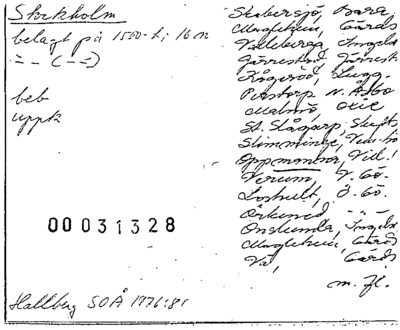 Stockholm
belagt på 1500-t; 16 n
beb
uppk
00031328
Hallberg SOÅ 1976:81
Skabersjö, Bara
Maglehem, Gärds
Valleberga, Ingelst
Järrestad, Järrest
Kågeröd, Lugg.
Perstorp N. Åsbo
Malmö, Oxie
St. Slågarp, Skytts
Slimminge, Vem
Oppmanna, Vill.
Verum, V. Gö.
Loshult, Ö. Gö.
Örkened
Onslunda, Ingelst
Maglehem, Gärds
Vä, Gärds
m. fl.